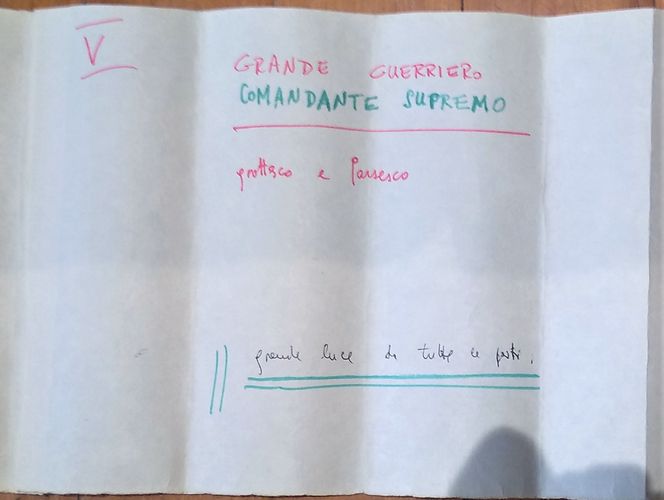 V
GRANDE GUERRIERO
COMANDANTE SUPREMO
grottesco e farsesco
grande luce da tutte le parti.